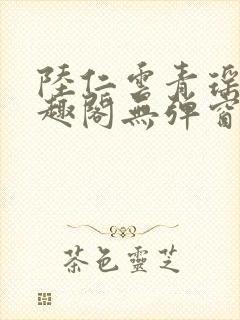 陸仁雲青瑶
趣閣無彈窗
茶色靈芝